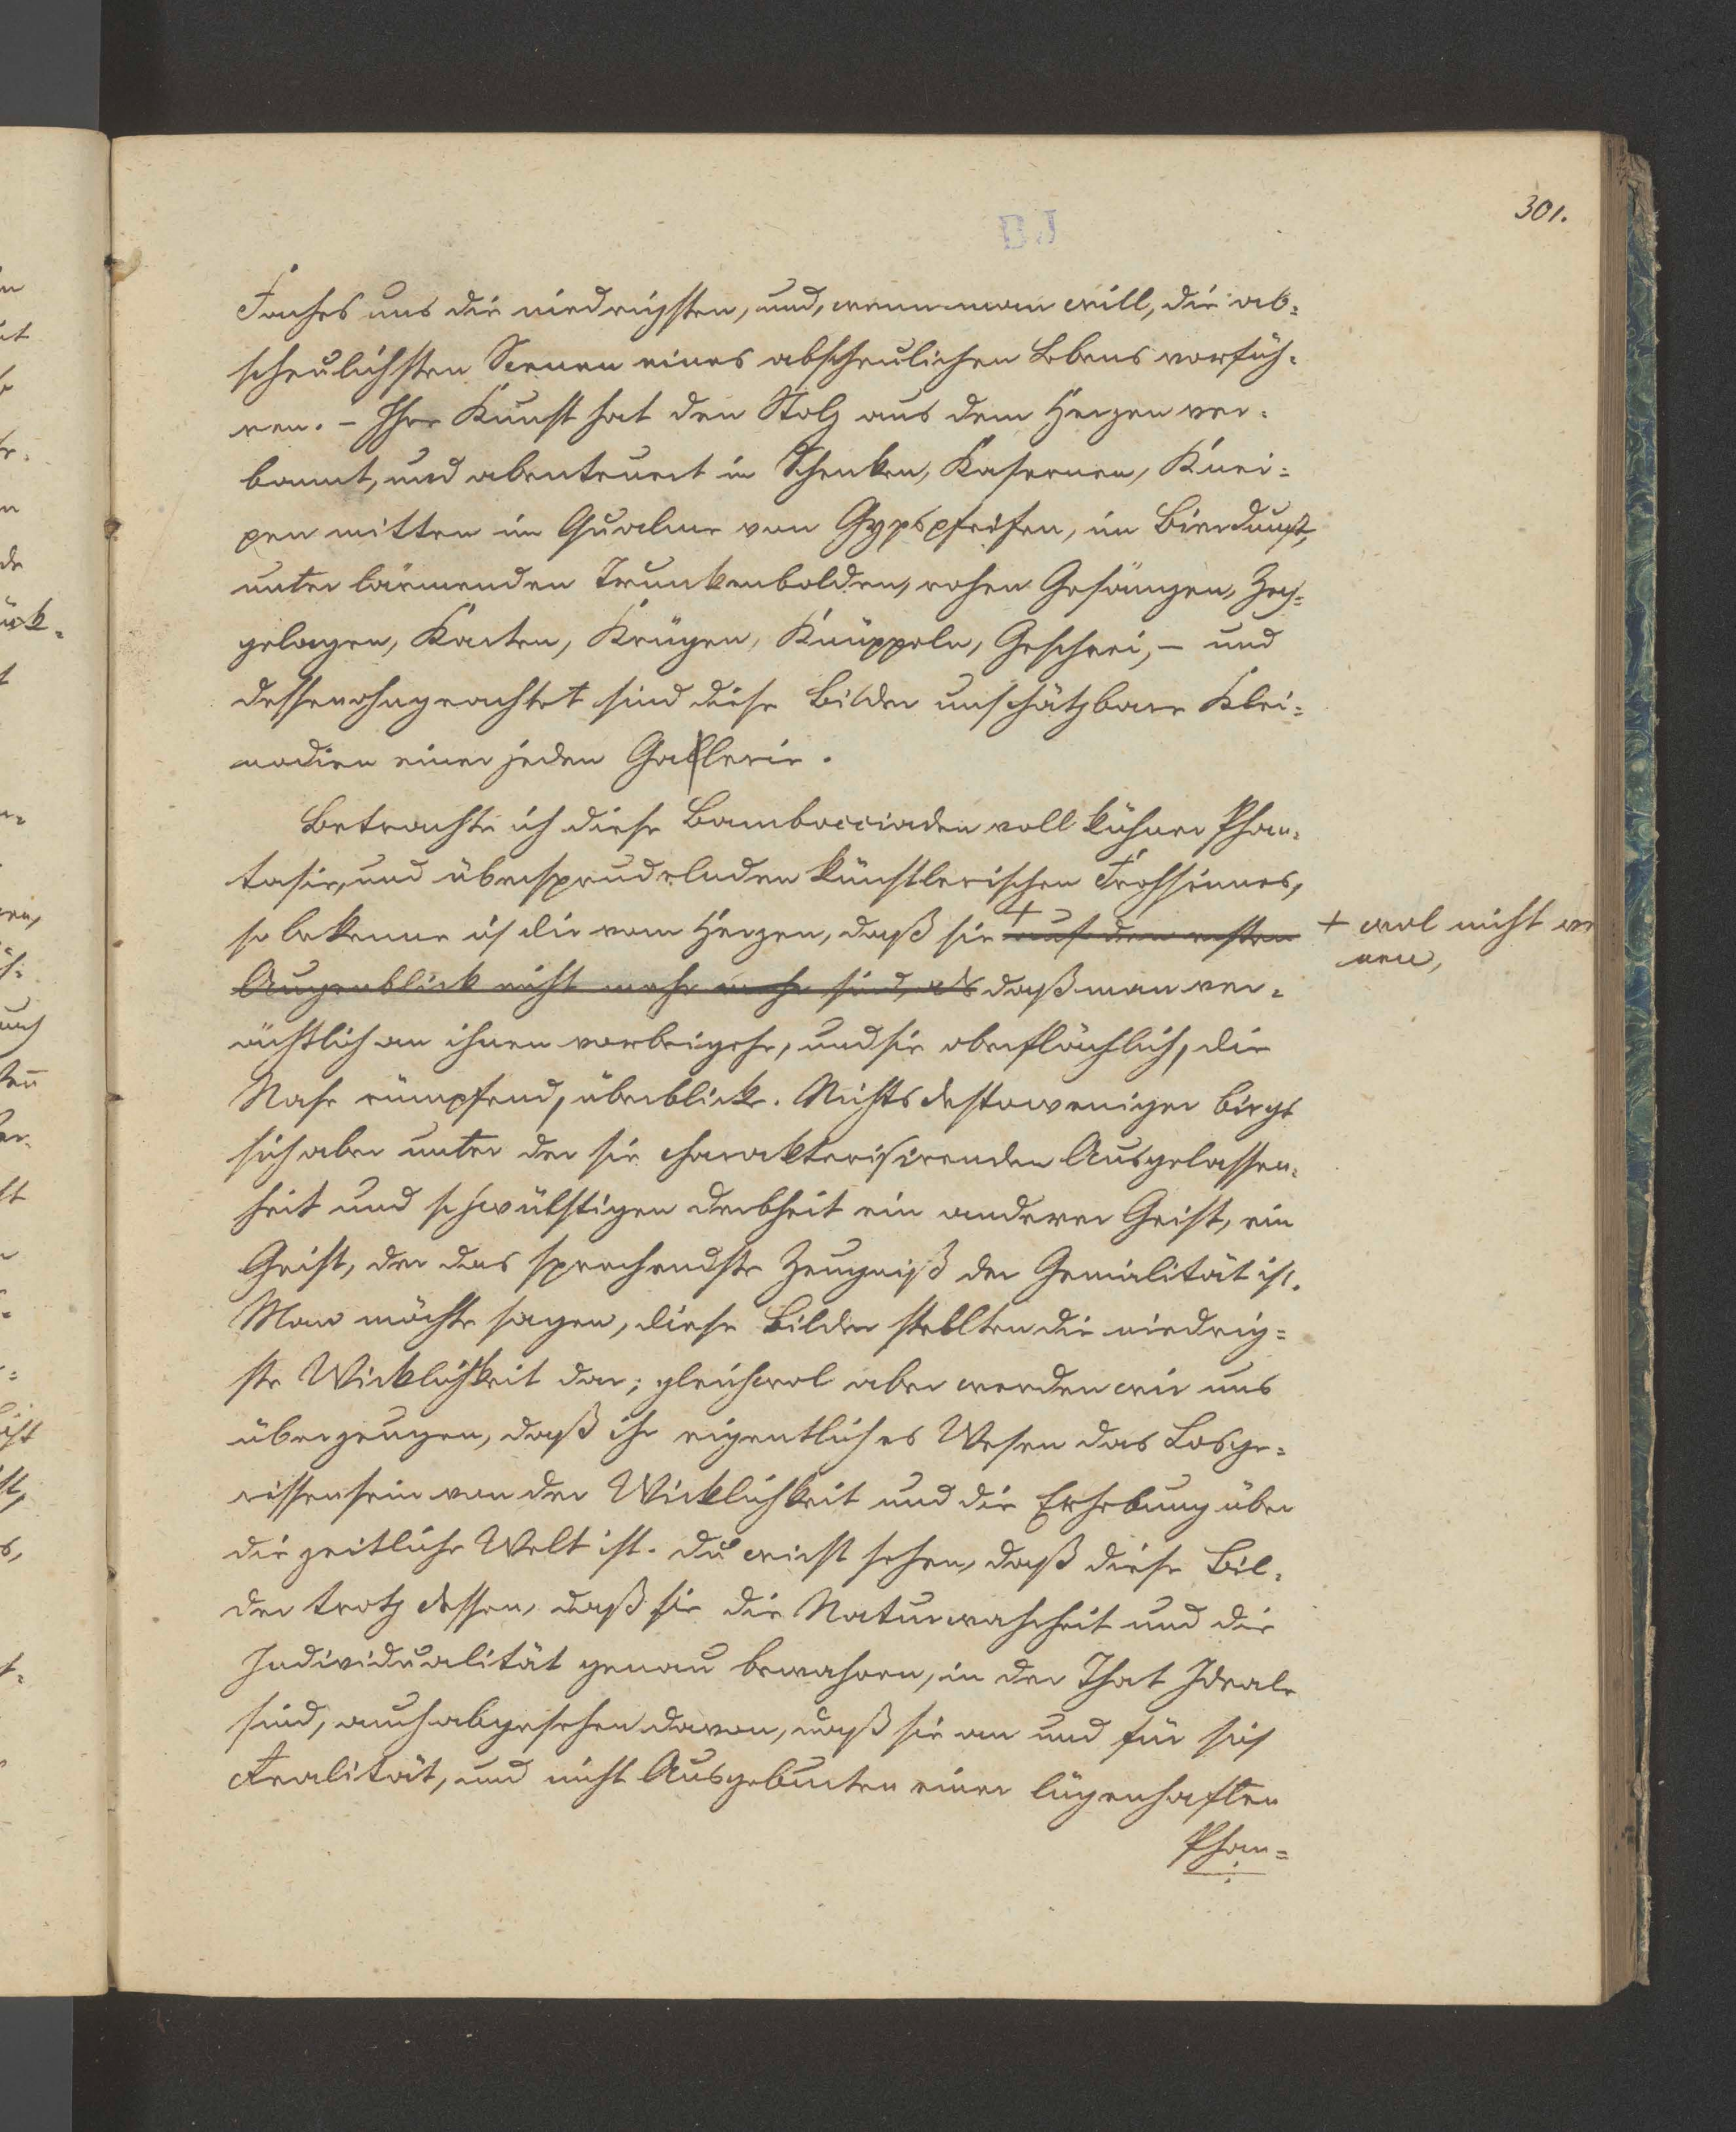 301.
BJ
Faches uns die niedrigsten, und, wenn man will, die ab=
scheulichsten Scenen eines abscheulichen Lebens vorfüh=
ren. – Ihre Kunst hat den Stolz aus dem Herzen ver=
bannt, und abenteuert in Schenken, Kasernen, Knei=
pen mitten im Qualme von Gypspfeifen, im Bierdunst,
unter lärmenden Trunkenbolden, rohen Gesängen, Zech=
gelagen, Karten, Krügen, Knüppeln, Geschrei, – und
dessenohngeachtet sind diese Bilder unschätzbare Klei=
nodien einer jeden Gallerie.
Betrachte ich diese Bambocciaden voll kühner Phan=
tasie, und übersprudelnden künstlerischen Frohsinnes,
so bekenne ich dir vom Herzen, daß sie + auf den ersten
+ wol nicht
nen,
Augenblick nicht mehr werth sind, als daß man ver=
ächtlich an ihnen vorbeigehe, und sie oberflächlich, die
Nase rümpfend, überblicke. Nichts destoweniger birgt
sich aber unter der sie charakterisirenden Ausgelassen=
heit und schwülstigen Derbheit ein anderer Geist, ein
Geist, der das sprechendste Zeugniß der Genialität ist.
Man möchte sagen, diese Bilder stellten die niedrig=
ste Wirklichkeit dar; gleichwol aber werden wir uns
überzeugen, daß ihr eigentliches Wesen das Losge=
rissensein von der Wirklichkeit und die Erhebung über
die zeitliche Welt ist. Du wirst sehen, daß diese Bil=
der trotz dessen, daß sie die Naturwahrheit und die
Individualität genau bewahren, in der That Ideale
sind, auch abgesehen davon, daß sie an und für sich
Realität, und nicht Ausgeburten einer lügenhaften
Phan=